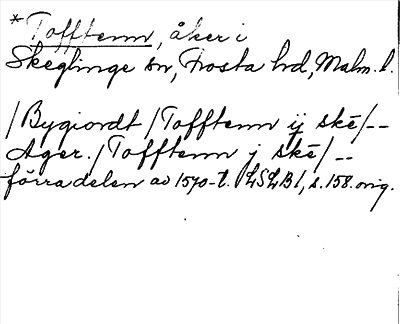 *Tofftenn, åker i
Skeglinge sn, Frosta hd, Malm. l.
/Bygiordt/Tofftenn ij skē/--
Ager./Tofftenn j skē/--
förra delen av 1570-t. LSLB1, s. 158. orig.